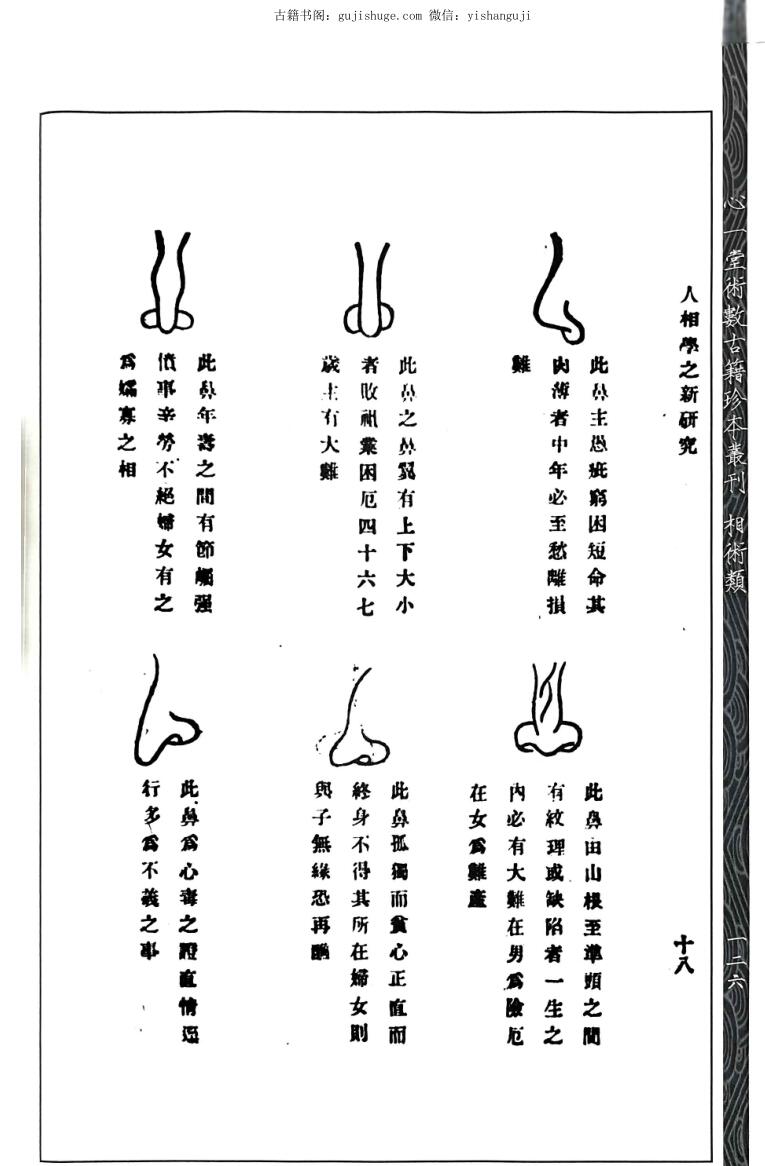 古籍书阁：gujishuge.com 微信：yishanguji
心一堂術數古籍珍本叢刊 相術類
一二六
人相學之新研究
十八
此鼻主愚疾窮困短命其
肉薄者中年必至愁離損
難
此鼻之鼻翼有上下大小
者敗祖業困厄四十六七
歲主有大難
此鼻年壽之間有節觸强
僨事辛勞不絕婦女有之
爲孀寡之相
此鼻由山根至準頭之間
有紋理或缺陷者一生之
内必有大難在男爲險厄
在女爲難產
此鼻孤獨而貧心正直而
終身不得其所在婦女則
與子無緣恐再醮
此鼻爲心毒之證直情逕
行多爲不義之事